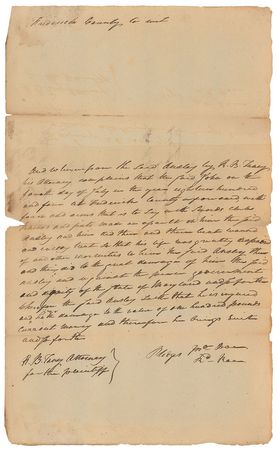 Frederick County, to wit
And whereupon the said Audley by R. B. Taney
his Attorney complains that the said John on the
fourth day of July in the year eighteen hundred
and four at Frederick County aforesaid with
force and arms that is to say with Swords clubs
and made an assault on him the said
Audley and him did then and there beat wound
and evilly treat so that his life was greatly despaired
of and other enormities to him the said Audley then
and there did to the great damage of him the said
Audley and against the peace government
and dignity of the State of Maryland and
whereupon the said Audley saith that he is injured
and hath damage to the value of one hundred pounds
current money and therefore he brings suit
and so forth
R. B. Taney Attorney
for the plaintiff
Pledges Jno Doe
Rd Roe